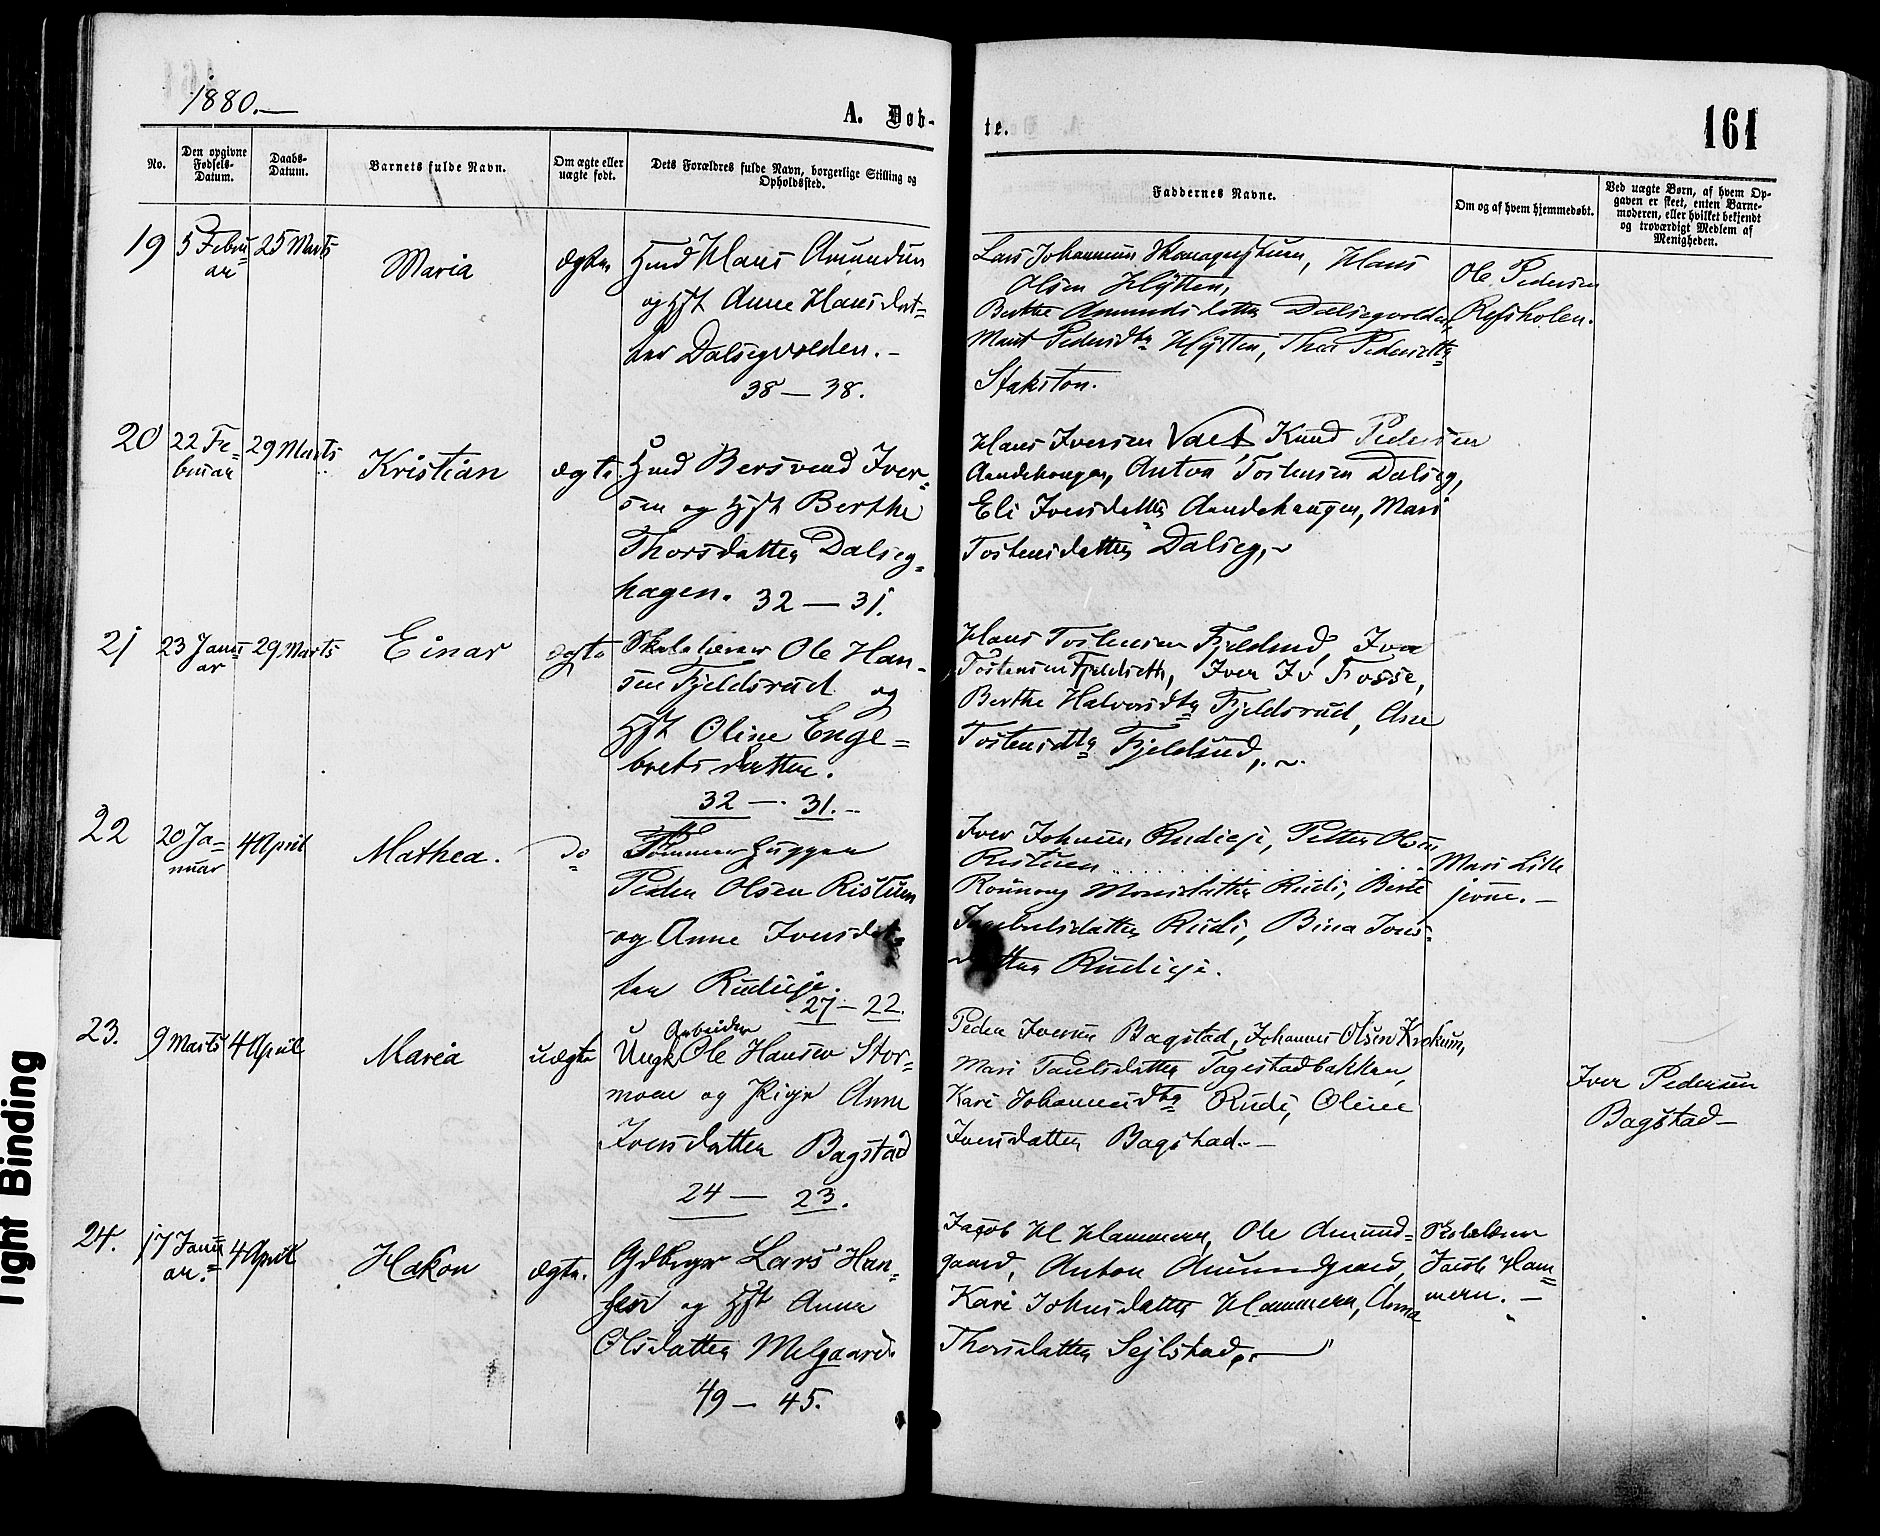 1880.—
A. Døb-
te.
161
No.
Den opgivne
Fødsels-
Datum.
Daabs-
Datum.
Barnets fulde Navn.
Om ægte eller
uægte født.
Dets Forældres fulde Navn, borgerlige Stilling og
Opholdssted.
Faddernes Navne.
Om og af hvem hjemmedøbt.
Ved uægte Børn, af hvem Op-
gaven er skeet, enten Barne-
moderen, eller hvilket bekjendt
og troværdigt Medlem af
Menigheden.
19
5 Febru
ar
25 Marts
Maria
ægte
Hmd Hans Amundsen
og Hst Anne Hansdat-
ter Dalsegvolden.–
38 — 38.
Lars Johannesen, Hans
Olsen Hÿtten,
Berthe Amundsdatter Dalsegvolden,
Marit Pedersdtr Hÿtten, Thea Pedersdtr
Stakston.
Ole Pedersen
Refsholen.
20
22 Fe-
bruar
29 Marts
Kristian
ægte
Hmd Bersvend Iver-
sen og Hst Berthe
Thorsdatter Dalseg-
hagen. 32 — 31.
Hans Iversen, Knud Pedersen
Aandehaugen, Anton Tostensen Dalseg,
Eli Iversdatter Aandehaugen, Mari
Tostensdatter Dalseg,~
21
23 Janu
ar
29. Marts
Einar
ægte
Skolelærer Ole Han-
sen Fjeldsrud og
Hst Oline Enge-
bretsdatter.
32 —. 31.–
Hans Tostensen Fjeldsrud, Iver
Tostensen, Iver Iv Fosse,
Berthe Halvorsdtr Fjeldsrud, Ane
Tostensdtr Fjeldsrud,.~
22
20 Ja-
nuar
4 April
Mathea.
do
Tømmerhugger
Peder Olsen Ristuen
og Anne Iversdat-
ter Rudieje.
27 – 22.
Iver Johnsen Rudieje, Petter Olsen
Ristuen
Rønnaug Monsdatter Rudi, Berte
Ingebretsdatter Rudi, Bina Ivers-
datter Rudieje.
Mari Lille
jorne.—
23.
9 Marts
4 April
Maria
uægte
Arbeider
Ungk Ole Hansen Stor-
moen og Pige Anne
Iversdatter Bagstad
24 — 23.
Peder Iversen Bagstad, Johannes Olsen Krokum,
Mari Paulsdatter Tagestadbakken,
Kari Johannesdtr Rudi, Oline
Iversdatter Bagstad.–
Iver Pedersen
Bagstad–
24.
17 Janu
ar.
4 April
Hakon
ægte.
Gdbrgr Lars Han-
sen og Hst Anne
Olsdatter Melgaard.
49 — 45.
Jacob H Hammern, Ole Amund-
gaard, Anton Amundgaard,
Kari Johnsdatter Hammern, Anna
Thorsdatter Sejlstad,.—
Skolelærer
Jacob Ham-
mern.–
Tight Binding